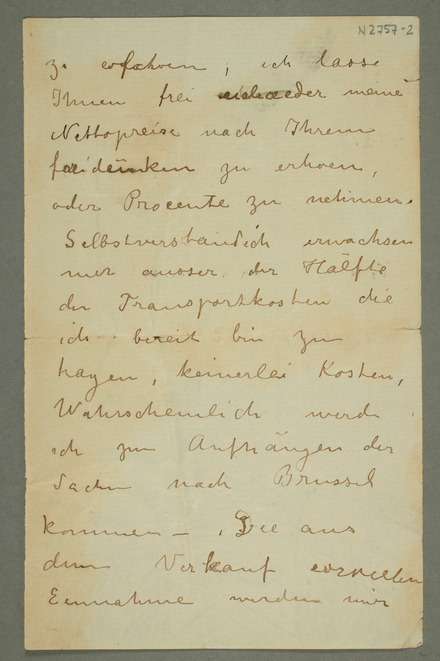 N2757-2
zu erfahren, ich lasse
Ihnen frei entweder meine
Nettopreise nach Ihrem
Gutdünken zu erhoen,
oder Procente zu nehmen.
Selbstverständich erwachsen
mir ausser der Hälfte
der Transportkosten die
ich bereit bin zu
tragen, keinerlei Kosten,
Wahrscheinlich werde
ich zum Aufhängen der
Sachen nach Brussel
kommen – Die aus
dem Verkauf
Einnahme werden mir